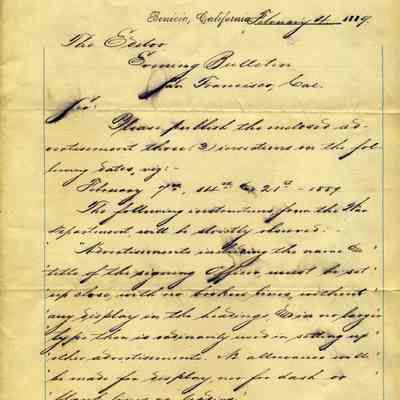 Benicia, California, February 4 1889.
The Editor
Evening Bulletin
San Francisco, Cal.
Sir:
Please publish the enclosed ad-
vertisement three (3) insertions in the fol-
lowing dates, viz:-
February 7th, 14th & 21st - 1889
The following instructions from the War
Department will be strictly observed:-
"Advertisements including the name &
"title of the signing Officer, must be set
"up close, with no broken lines, without
"any display in the heading & in no larger
"type than is ordinarily used in setting up
"other advertisements. No allowance will
"be made for display, nor for dash or
"blank lines or